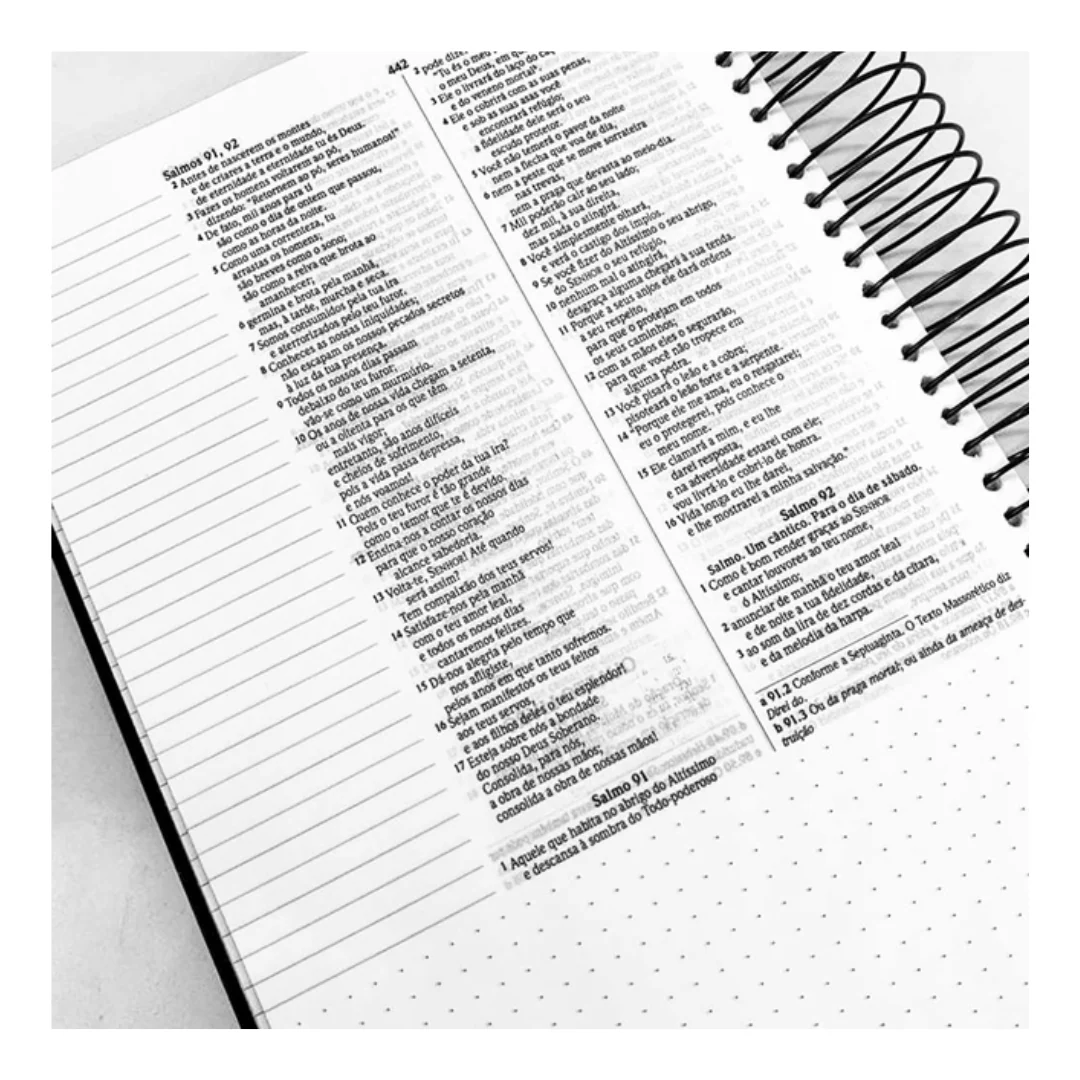 442
Salmos 91, 92
2 Antes de nascerem os montes
e de criares a terra e o mundo,
de eternidade a eternidade tu és Deus.
3 Fazes os homens voltarem ao pó,
dizendo: "Retornem ao pó, seres humanos!"
4 De fato, mil anos para ti
são como o dia de ontem que passou,
como as horas da noite.
5 Como uma correnteza, tu
arrastas os homens;
são breves como o sono;
são como a relva que brota ao
amanhecer;
6 germina e brota pela manhã,
mas, à tarde, murcha e seca.
7 Somos consumidos pela tua ira
e aterrorizados pelo teu furor.
8 Conheces as nossas iniquidades;
não escapam os nossos pecados secretos
à luz da tua presença.
9 Todos os nossos dias passam
debaixo do teu furor;
vão-se como um murmúrio.
10 Os anos de nossa vida chegam a setenta,
ou a oitenta para os que têm
mais vigor;
entretanto, são anos difíceis
e cheios de sofrimento,
pois a vida passa depressa,
e nós voamos!
11 Quem conhece o poder da tua ira?
Pois o teu furor é tão grande
como o temor que te é devido.
12 Ensina-nos a contar os nossos dias
para que o nosso coração
alcance sabedoria.
13 Volta-te, SENHOR! Até quando
será assim?
Tem compaixão dos teus servos!
14 Satisfaze-nos pela manhã
com o teu amor leal,
e todos os nossos dias
cantaremos felizes.
15 Dá-nos alegria pelo tempo que
nos afligiste,
pelos anos em que tanto sofremos.
16 Sejam manifestos os teus feitos
aos teus servos,
e aos filhos deles o teu esplendor!
17 Esteja sobre nós a bondade
do nosso Deus Soberano.
Consolida, para nós,
a obra de nossas mãos;
consolida a obra de nossas mãos!
Salmo 91
1 Aquele que habita no abrigo do Altíssimo
e descansa à sombra do Todo-poderoso
2 pode dize
"Tu és o meu
o meu Deus, em qu
3 Ele o livrará do laço do
e do veneno mortalᵇ.
4 Ele o cobrirá com as suas penas,
e sob as suas asas você
encontrará refúgio;
a fidelidade dele será o seu
escudo protetor.
5 Você não temerá o pavor da noite
nem a flecha que voa de dia,
6 nem a peste que se move sorrateira
nas trevas,
nem a praga que devasta ao meio-dia.
7 Mil poderão cair ao seu lado;
dez mil, à sua direita,
mas nada o atingirá.
8 Você simplesmente olhará,
e verá o castigo dos ímpios.
9 Se você fizer do Altíssimo o seu abrigo,
do SENHOR o seu refúgio,
10 nenhum mal o atingirá,
desgraça alguma chegará à sua tenda.
11 Porque a seus anjos ele dará ordens
a seu respeito,
para que o protejam em todos
os seus caminhos;
12 com as mãos eles o segurarão,
para que você não tropece em
alguma pedra.
13 Você pisará o leão e a cobra;
pisoteará o leão forte e a serpente.
14 "Porque ele me ama, eu o resgatarei;
eu o protegerei, pois conhece o
meu nome.
15 Ele clamará a mim, e eu lhe
darei resposta,
e na adversidade estarei com ele;
vou livrá-lo e cobri-lo de honra.
16 Vida longa eu lhe darei,
e lhe mostrarei a minha salvação."
Salmo 92
Salmo. Um cântico. Para o dia de sábado.
1 Como é bom render graças ao SENHOR
e cantar louvores ao teu nome,
ó Altíssimo;
2 anunciar de manhã o teu amor leal
e de noite a tua fidelidade,
3 ao som da lira de dez cordas e da cítara,
e da melodia da harpa.
a 91.2 Conforme a Septuaginta. O Texto Massorético diz
Direi do.
b 91.3 Ou da praga mortal; ou ainda da ameaça de des-
truição